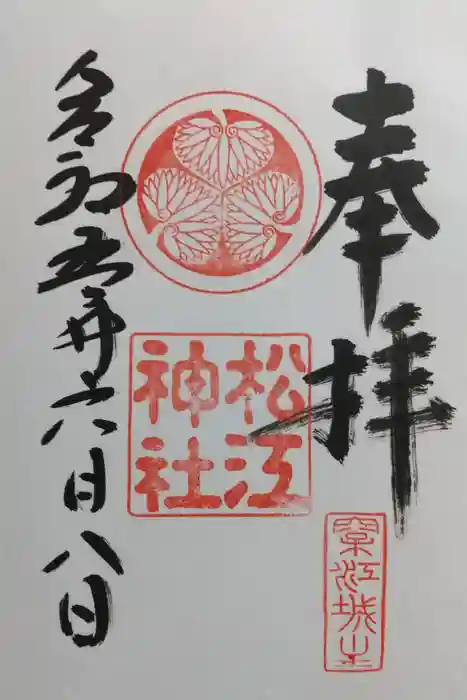 奉拝
松江城
松江
神社
令和五年六月八日